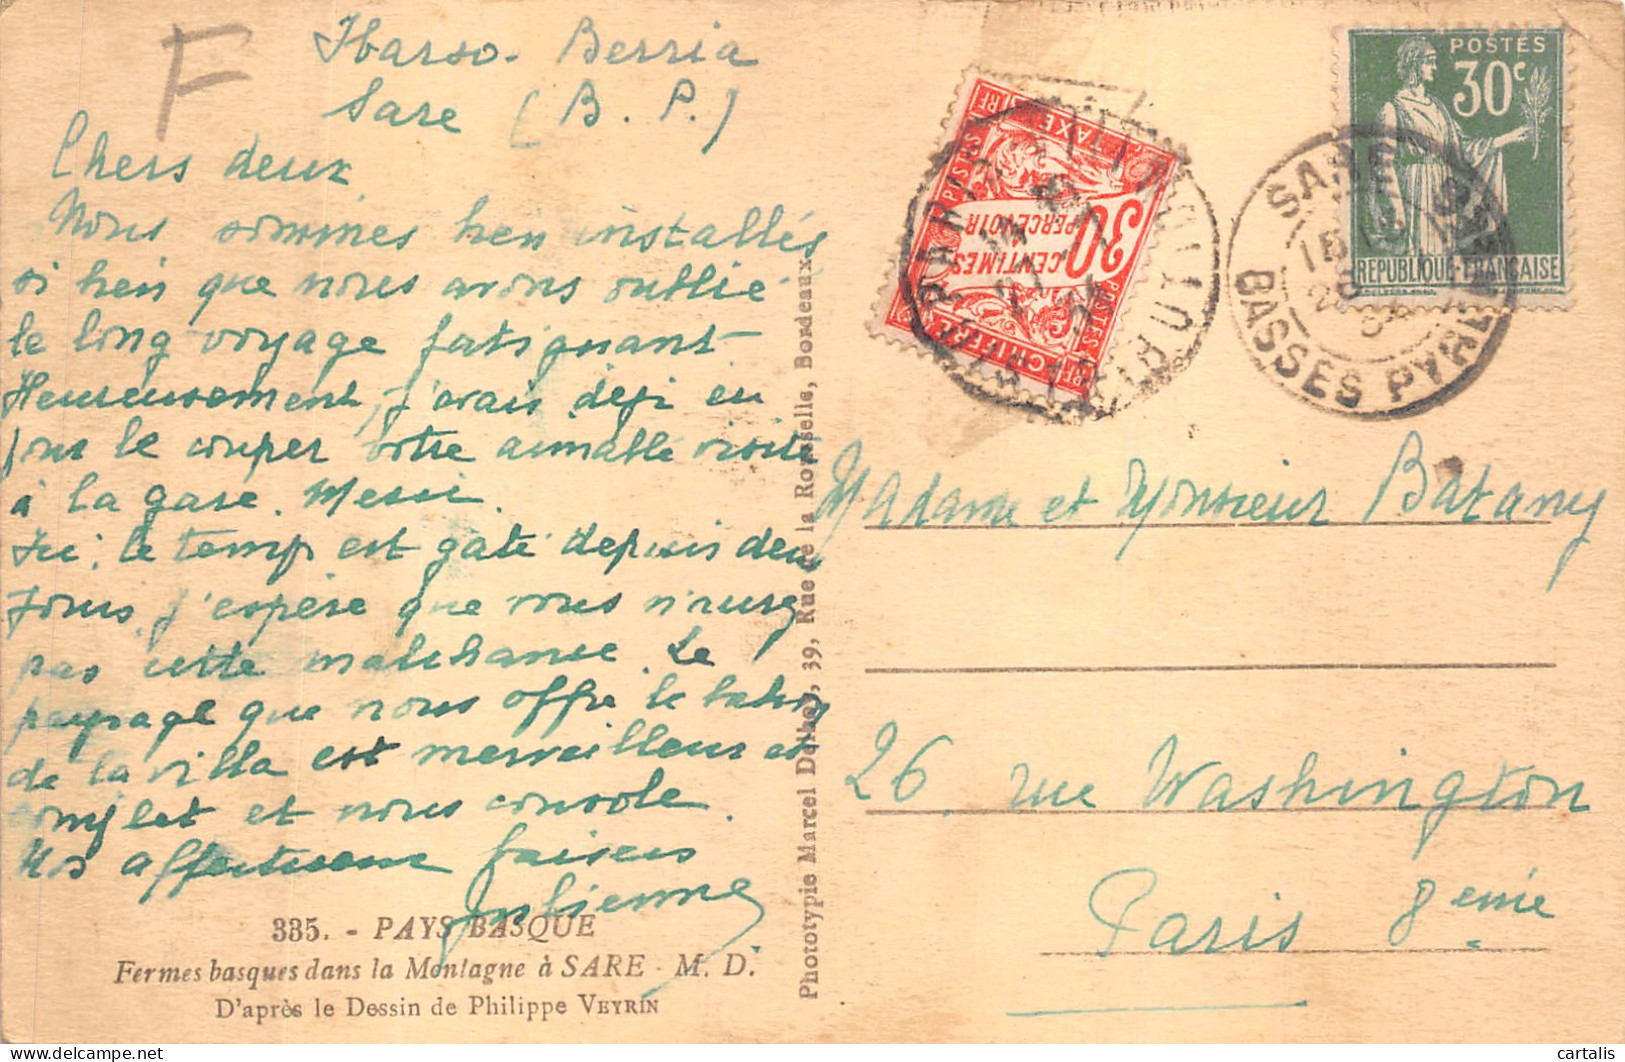 F
Ibarso-Berria
Sare (B.P.)
Chers deux
Nous sommes bien installés
si bien que nous avons oublié
le long voyage fatiguant
Heureusement, j'avais déjà eu
pour le couper votre aimable visite
à la gare. Merci.
Ici, le temps est gâté depuis deux
jours, j'espère que vous n'avez
pas cette malchance. Le
paysage que nous offre le balcon
de la villa est merveilleux et
complet et nous console.
Nos affectueux baisers
Julienne
335. - PAYS BASQUE
Fermes basques dans la Montagne à SARE - M. D.
D'après le Dessin de Philippe VEYRIN
Phototypie Marcel Delboy, 39, Rue de la Rousselle, Bordeaux
POSTES
30c
REPUBLIQUE FRANÇAISE
SARE
BASSES PYRÉ
RF
TAXE
30
CENTIMES
A PERCEVOIR
POSTES
CHIFFRE
RF
PARIS
Madame et Monsieur Batany
26. rue Washington
Paris 8eme
cartalis